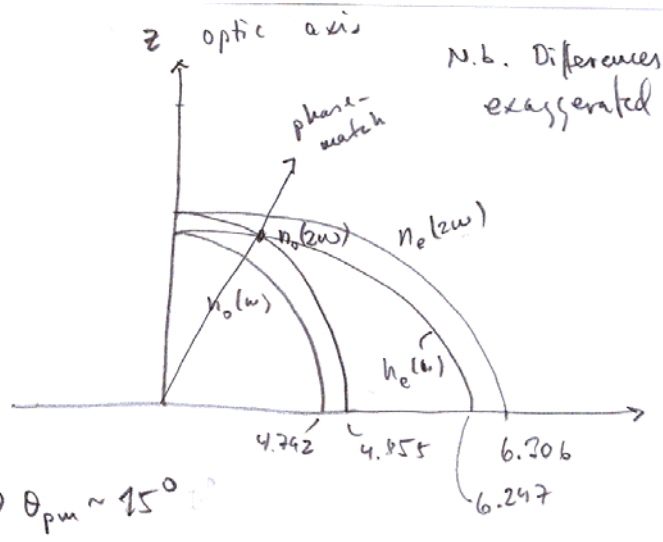 z optic axis
N.b. Differences
exaggerated
phase-
match
n_o(2ω)
n_e(2ω)
n_o(ω)
n_e(ω)
4.742
4.855
6.306
6.247
θ_pm ~ 15°